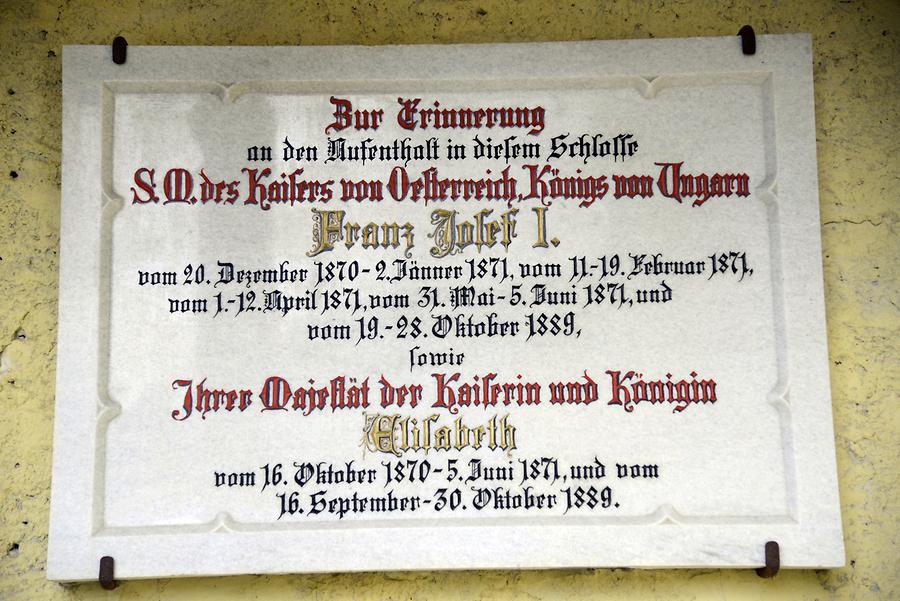 Zur Erinnerung
an den Aufenthalt in dieſem Schloſſe
S. M. des Kaiſers von Oeſterreich, Königs von Ungarn
Franz Joſef I.
vom 20. Dezember 1870 - 2. Jänner 1871, vom 11.-19. Februar 1871,
vom 1.-12. April 1871, vom 31. Mai - 5. Juni 1871, und
vom 19.-28. Oktober 1889,
ſowie
Ihrer Majeſtät der Kaiſerin und Königin
Eliſabeth
vom 16. Oktober 1870 - 5. Juni 1871, und vom
16. September - 30. Oktober 1889.